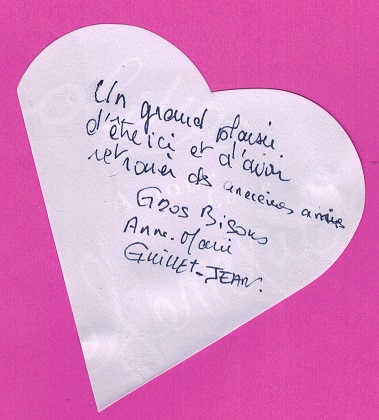 Un grand plaisir
d'être ici et d'avoir
retrouver des anciennes amies
Gros Bisous
Anne-Marie
GUILLET-JEAN.